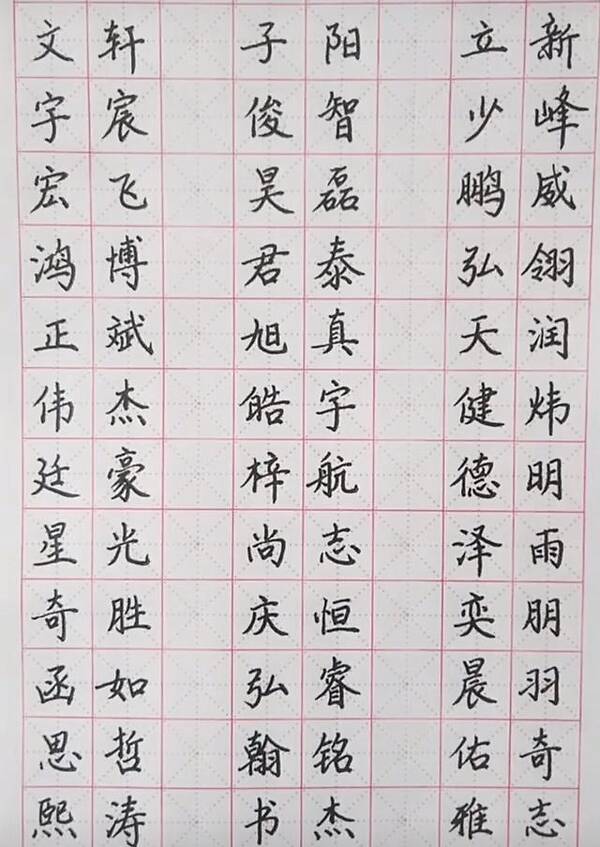 文轩 子阳 立新
宇宸 俊智 少峰
宏飞 昊磊 鹏威
鸿博 君泰 弘翎
正斌 旭真 天润
伟杰 皓宇 健炜
廷豪 梓航 德明
星光 尚志 泽雨
奇胜 庆恒 奕朋
函如 弘睿 晨羽
思哲 翰铭 佑奇
熙涛 书杰 雅志